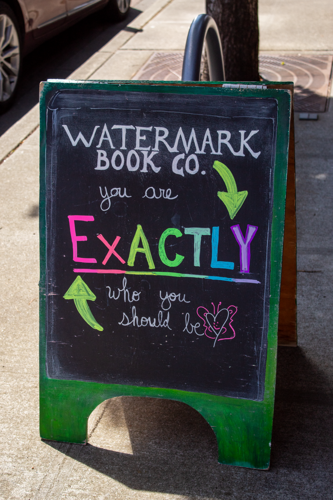 WATERMARK
BOOK CO.
you are
EXACTLY
who you
should be